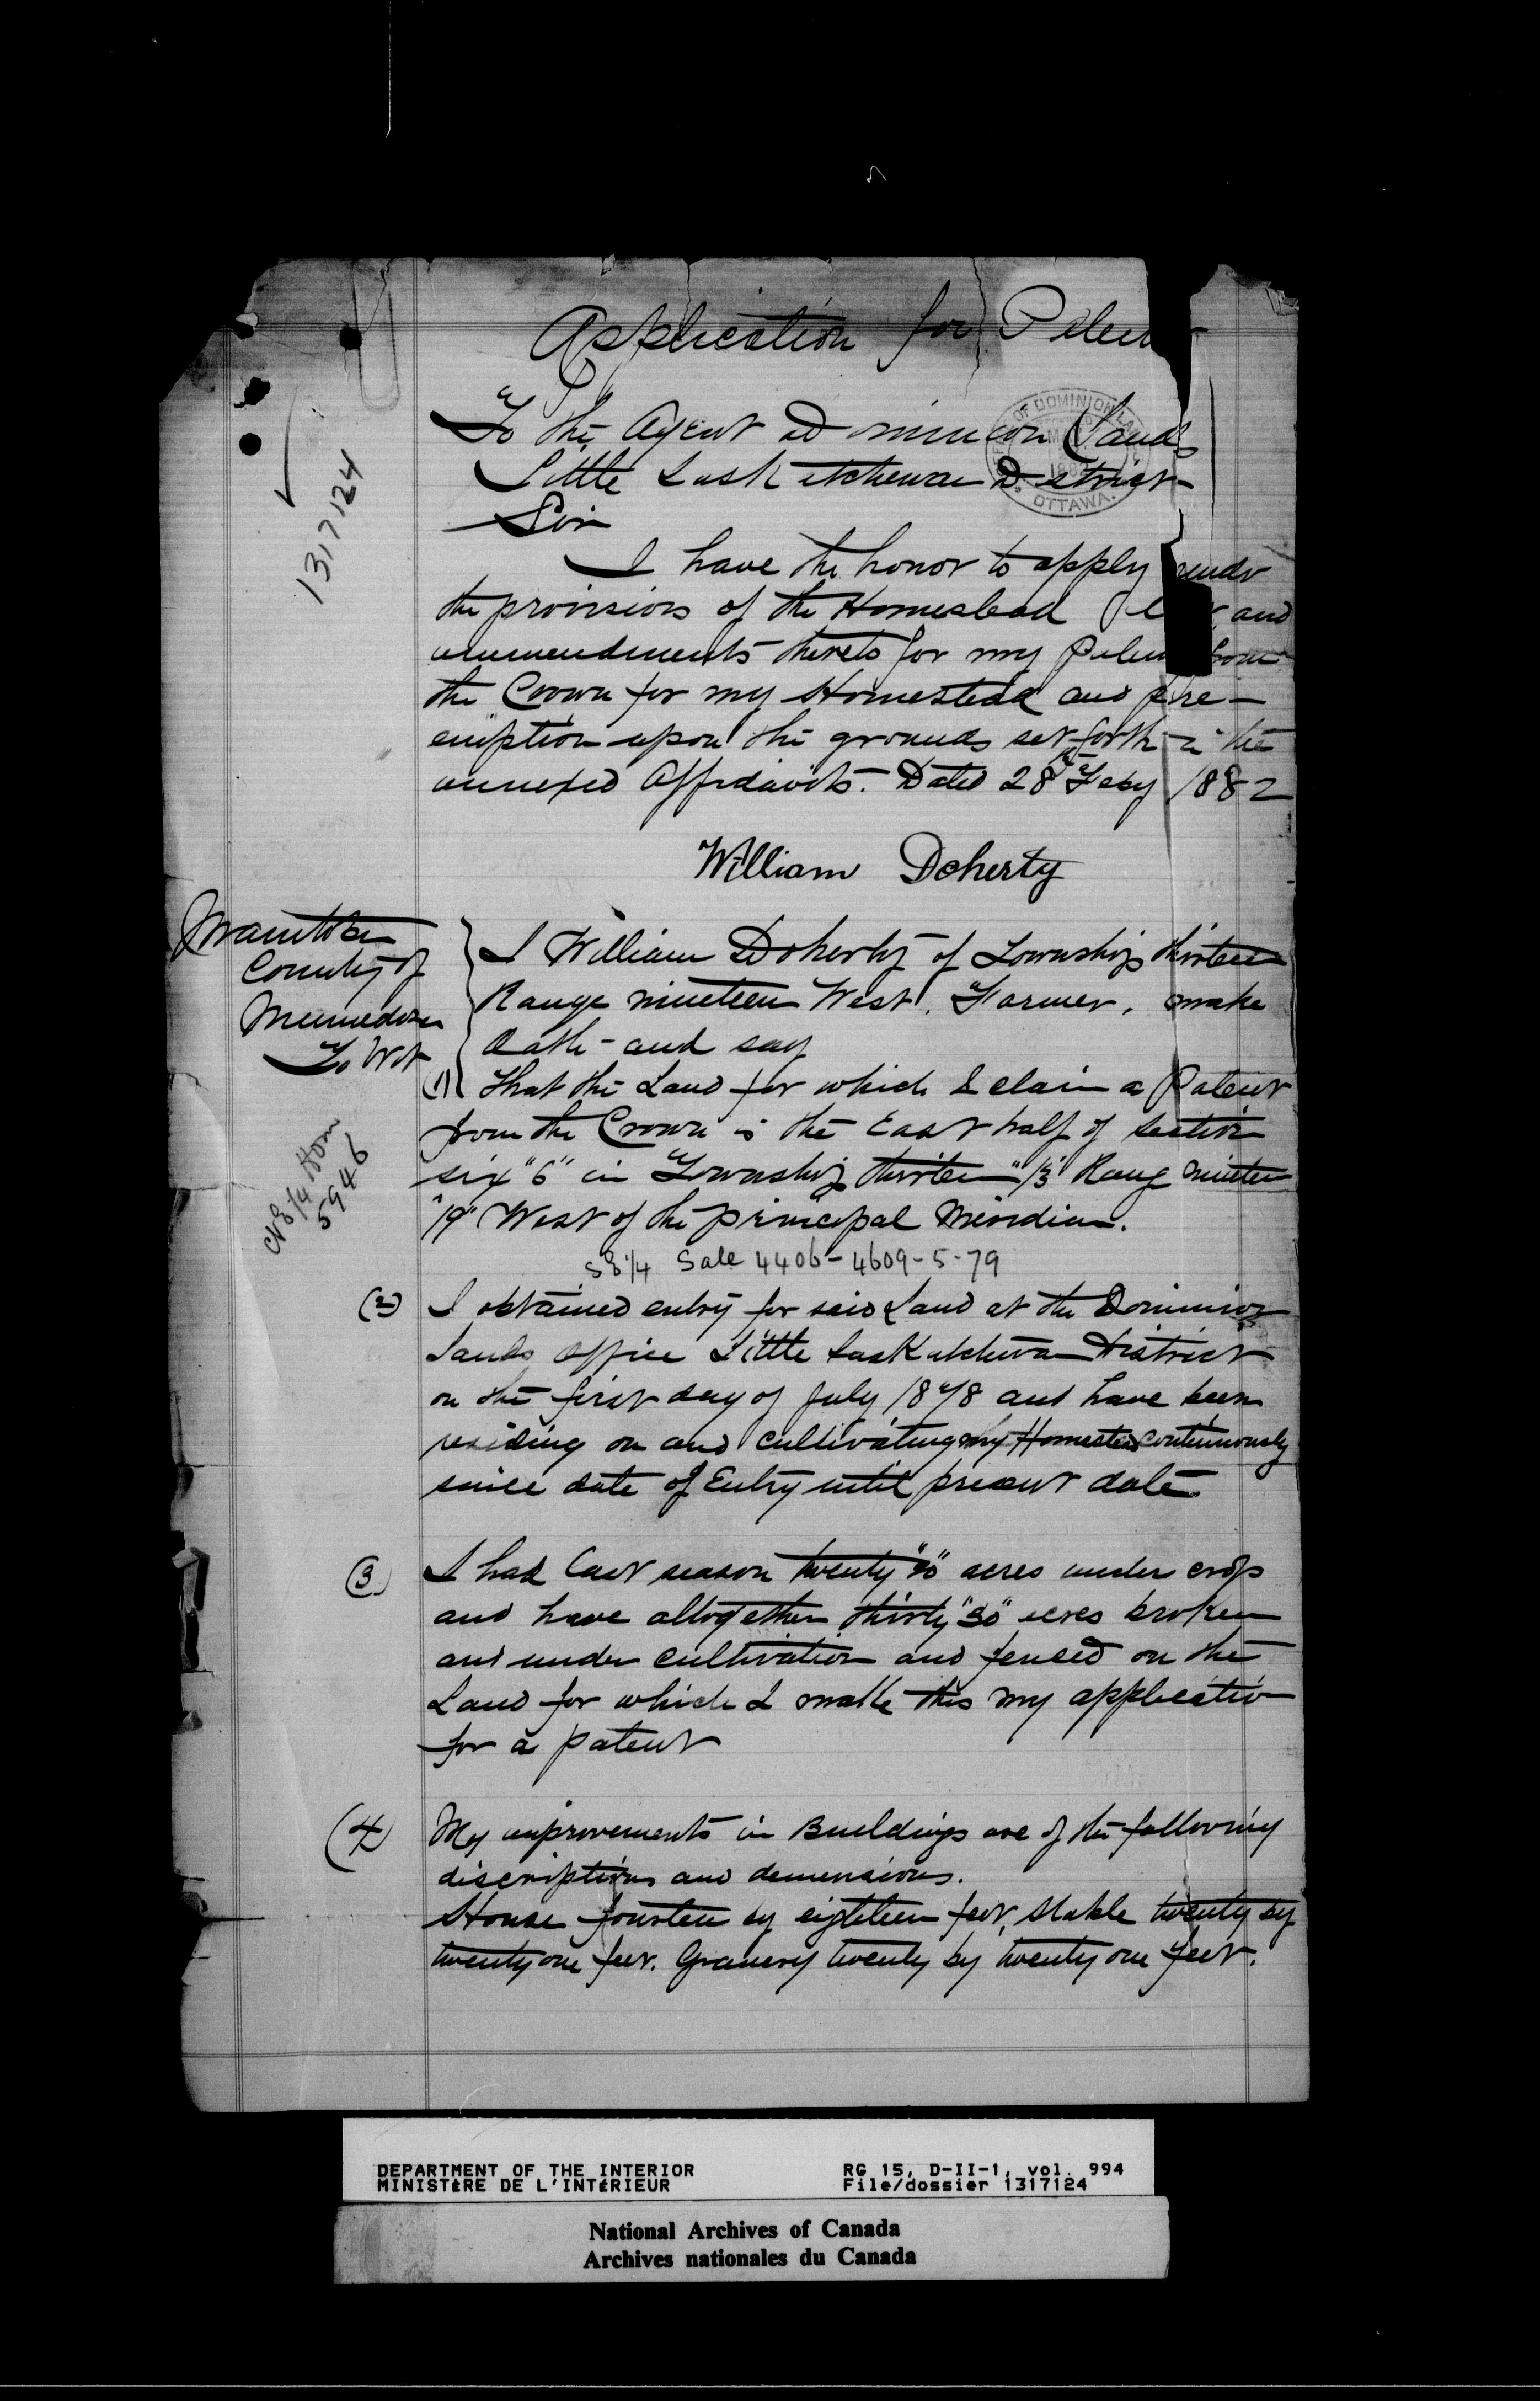 Application for Paten
To the Agent Dominion Lands
Little Saskatchewan District
Sir
I have the honor to apply under
the provisions of the Homestead and
ammendments thereto for my Paten from
the Crown for my Homestead and pre-
emption upon the grounds set forth in the
annexed Affidavits. Dated 28th Feby 1882
William Doherty
OF DOMINION LA
1882
OTTAWA.
1317124
Manitoba
County of
Minnedosa
To Wit
I William Doherty of Township thirteen
Range nineteen West. Farmer, make
Oath- and say
(1) That the Land for which I claim a Patent
from the Crown is the East half of section
six "6" in Township thirteen "13" Rang nineteen
"19" West of the principal Meridian.
NE 1/4 Hom
5946
SE 1/4 Sale 4406-4609-5-79
(2) I obtained entry for said Land at the Dominion
Lands Office Little Saskatchewan District
on the first day of July 1878 and have been
residing on and cultivating my Homestead continuously
since date of Entry until present date
(3) I had last season twenty "20" acres under crop
and have altogether thirty "30" acres broken
and under cultivation and fenced on the
Land for which I make this my application
for a patent
(4) My improvements in Buildings are of the following
discriptions and demensions.
House fourteen by eighteen feet, Stable twenty by
twenty one feet. Granery twenty by twenty one feet.
DEPARTMENT OF THE INTERIOR
MINISTÈRE DE L'INTÉRIEUR
RG 15, D-II-1, vol. 994
File/dossier 1317124
National Archives of Canada
Archives nationales du Canada